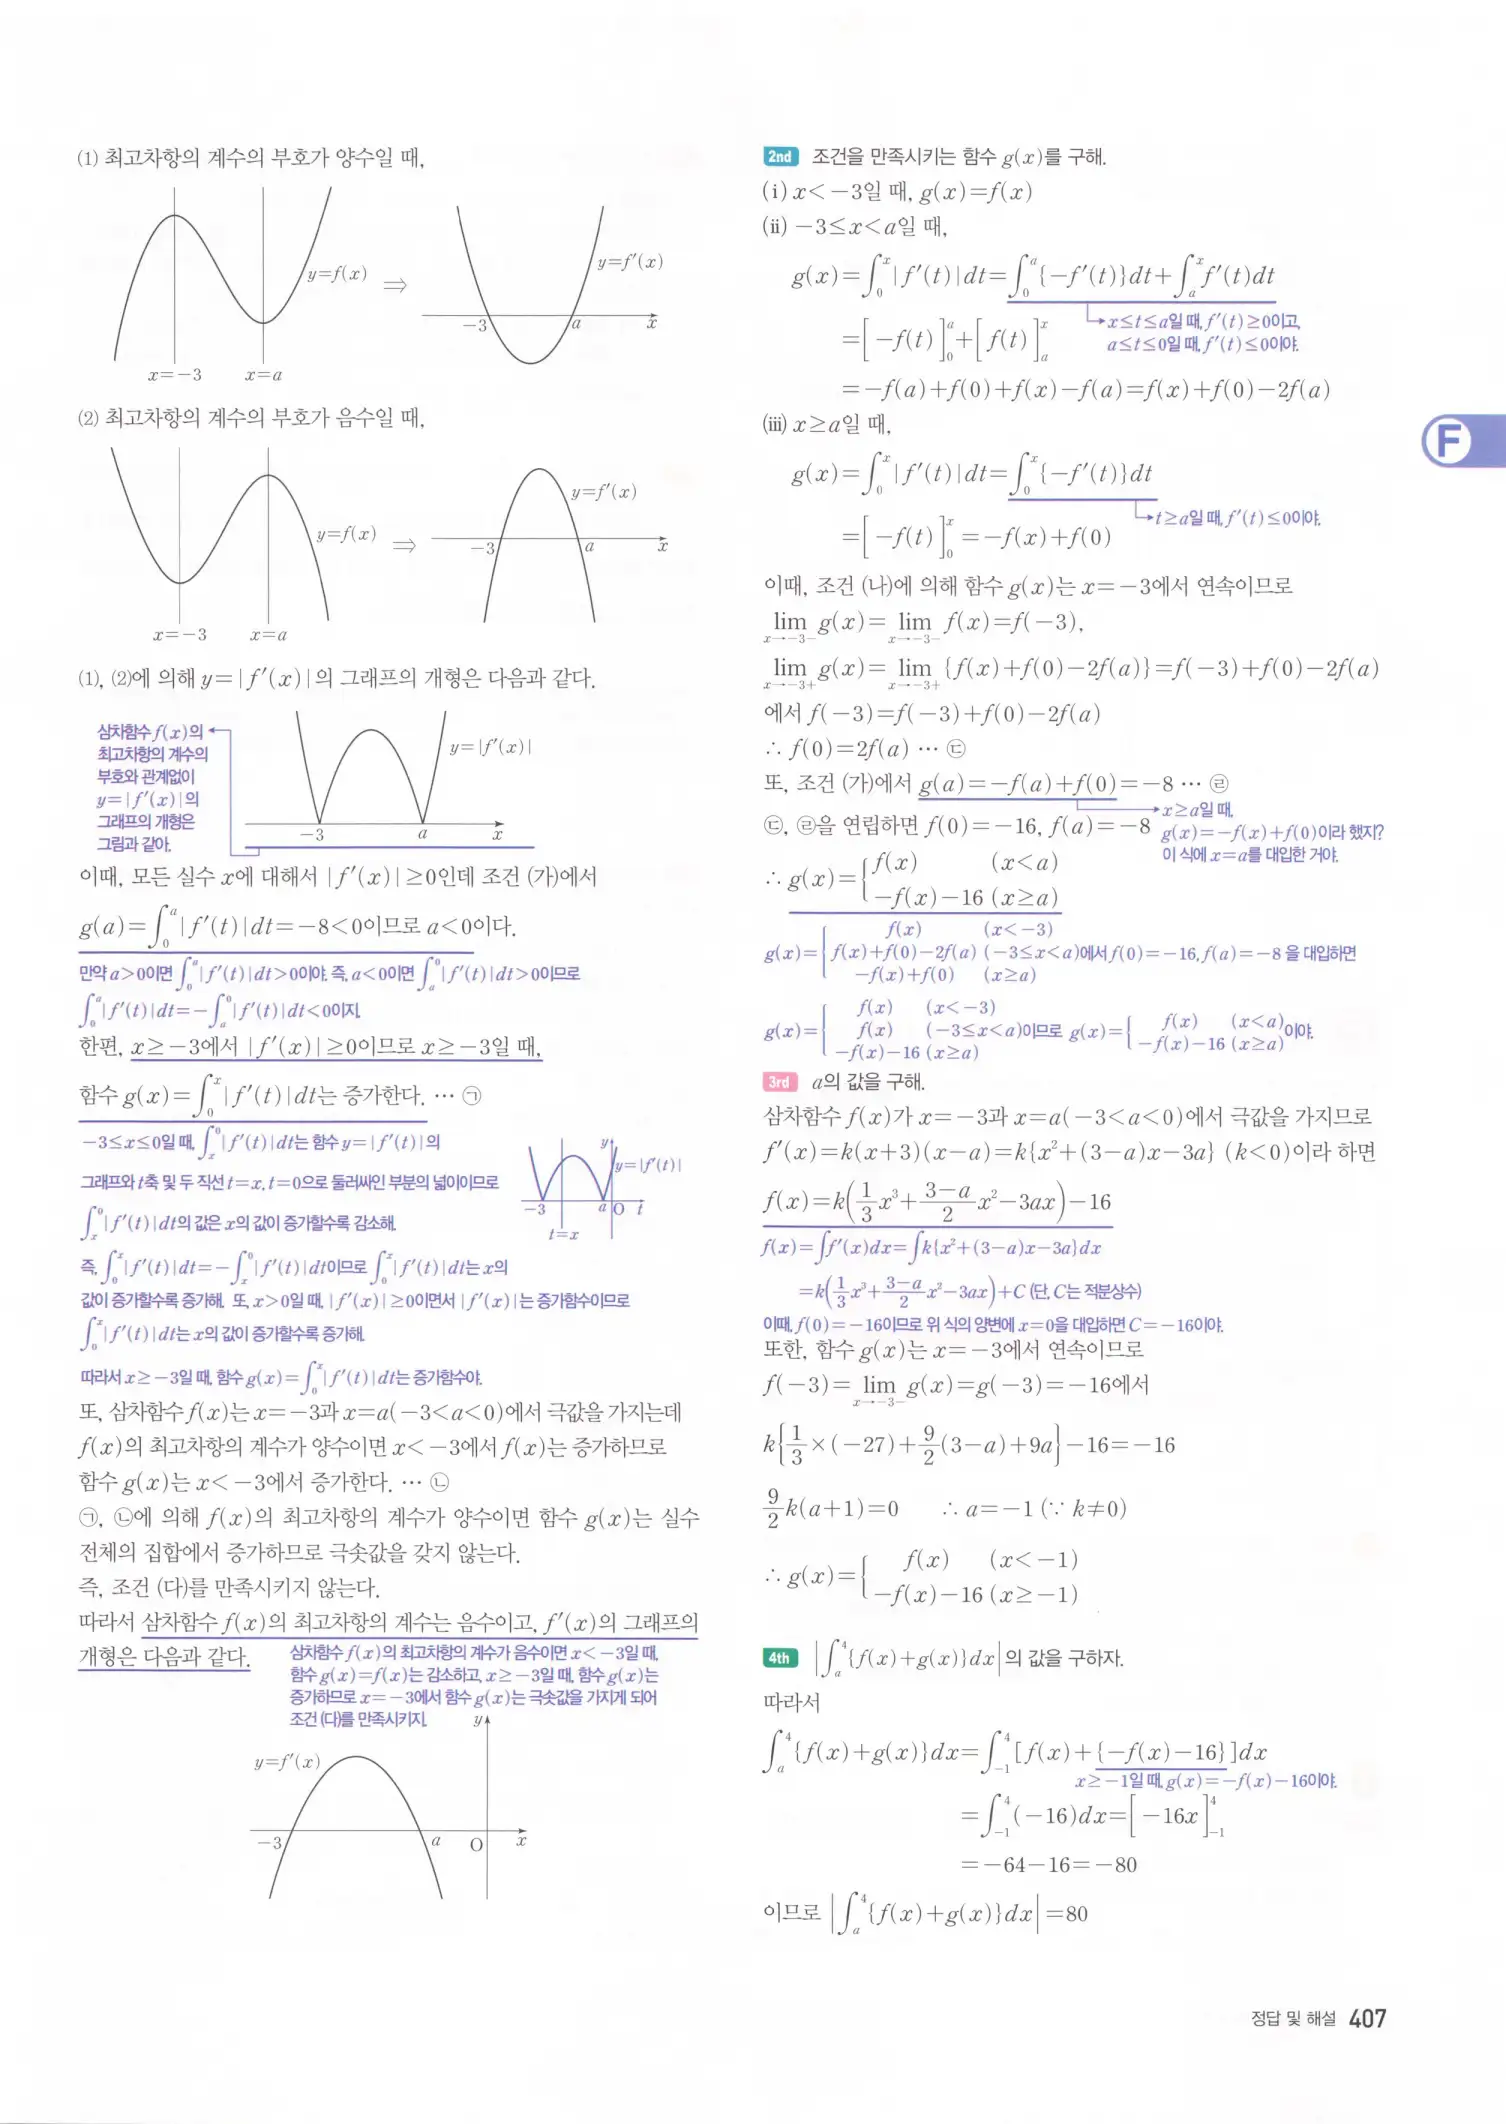 (1) 최고차항의 계수의 부호가 양수일 때,
y=f(x)
⇒
y=f′(x)
-3
a
x
x=-3
x=a
(2) 최고차항의 계수의 부호가 음수일 때,
y=f(x)
⇒
y=f′(x)
-3
a
x
x=-3
x=a
(1), (2)에 의해 y=|f′(x)|의 그래프의 개형은 다음과 같다.
삼차함수 f(x)의
최고차항의 계수의
부호와 관계없이
y=|f′(x)|의
그래프의 개형은
그림과 같아.
y=|f′(x)|
-3
a
x
이때, 모든 실수 x에 대해서 |f′(x)|≥0인데 조건 (가)에서
g(a)=∫₀ᵃ|f′(t)|dt=-8<0이므로 a<0이다.
만약 a>0이면 ∫₀ᵃ|f′(t)|dt>0이야. 즉, a<0이면 ∫ₐ⁰|f′(t)|dt>0이므로
∫₀ᵃ|f′(t)|dt=-∫ₐ⁰|f′(t)|dt<0이지.
한편, x≥-3에서 |f′(x)|≥0이므로 x≥-3일 때,
함수 g(x)=∫₀ˣ|f′(t)|dt는 증가한다. … ㉠
-3≤x≤0일 때, ∫ₓ⁰|f′(t)|dt는 함수 y=|f′(t)|의
그래프와 t축 및 두 직선 t=x, t=0으로 둘러싸인 부분의 넓이이므로
∫ₓ⁰|f′(t)|dt의 값은 x의 값이 증가할수록 감소해.
y
y=|f′(t)|
-3
a
O
t
t=x
즉, ∫₀ˣ|f′(t)|dt=-∫ₓ⁰|f′(t)|dt이므로 ∫₀ˣ|f′(t)|dt는 x의
값이 증가할수록 증가해. 또, x>0일 때, |f′(x)|≥0이면서 |f′(x)|는 증가함수이므로
∫₀ˣ|f′(t)|dt는 x의 값이 증가할수록 증가해.
따라서 x≥-3일 때, 함수 g(x)=∫₀ˣ|f′(t)|dt는 증가함수야.
또, 삼차함수 f(x)는 x=-3과 x=a(-3<a<0)에서 극값을 가지는데
f(x)의 최고차항의 계수가 양수이면 x<-3에서 f(x)는 증가하므로
함수 g(x)는 x<-3에서 증가한다. … ㉡
㉠, ㉡에 의해 f(x)의 최고차항의 계수가 양수이면 함수 g(x)는 실수
전체의 집합에서 증가하므로 극솟값을 갖지 않는다.
즉, 조건 (다)를 만족시키지 않는다.
따라서 삼차함수 f(x)의 최고차항의 계수는 음수이고, f′(x)의 그래프의
개형은 다음과 같다.
삼차함수 f(x)의 최고차항의 계수가 음수이면 x<-3일 때,
함수 g(x)=f(x)는 감소하고, x≥-3일 때, 함수 g(x)는
증가하므로 x=-3에서 함수 g(x)는 극솟값을 가지게 되어
조건 (다)를 만족시키지.
y
y=f′(x)
-3
a
O
x
2nd 조건을 만족시키는 함수 g(x)를 구해.
(i) x<-3일 때, g(x)=f(x)
(ii) -3≤x<a일 때,
g(x)=∫₀ˣ|f′(t)|dt=∫₀ᵃ{-f′(t)}dt+∫ₐˣf′(t)dt
x≤t≤a일 때, f′(t)≥0이고,
a≤t≤0일 때, f′(t)≤0이야.
=[-f(t)]₀ᵃ+[f(t)]ₐˣ
=-f(a)+f(0)+f(x)-f(a)=f(x)+f(0)-2f(a)
(iii) x≥a일 때,
g(x)=∫₀ˣ|f′(t)|dt=∫₀ˣ{-f′(t)}dt
t≥a일 때, f′(t)≤0이야.
=[-f(t)]₀ˣ=-f(x)+f(0)
이때, 조건 (나)에 의해 함수 g(x)는 x=-3에서 연속이므로
lim x→-3- g(x)= lim x→-3- f(x)=f(-3),
lim x→-3+ g(x)= lim x→-3+ {f(x)+f(0)-2f(a)}=f(-3)+f(0)-2f(a)
에서 f(-3)=f(-3)+f(0)-2f(a)
∴ f(0)=2f(a) … ㉢
또, 조건 (가)에서 g(a)=-f(a)+f(0)=-8 … ㉣
x≥a일 때,
g(x)=-f(x)+f(0)이라 했지?
이 식에 x=a를 대입한 거야.
㉢, ㉣을 연립하면 f(0)=-16, f(a)=-8
∴ g(x)={ f(x) (x<a)
-f(x)-16 (x≥a)
f(x) (x<-3)
g(x)={ f(x)+f(0)-2f(a) (-3≤x<a)에서 f(0)=-16, f(a)=-8을 대입하면
-f(x)+f(0) (x≥a)
f(x) (x<-3)
g(x)={ f(x) (-3≤x<a)이므로 g(x)={ f(x) (x<a)
-f(x)-16 (x≥a) -f(x)-16 (x≥a)이야.
3rd a의 값을 구해.
삼차함수 f(x)가 x=-3과 x=a(-3<a<0)에서 극값을 가지므로
f′(x)=k(x+3)(x-a)=k{x²+(3-a)x-3a} (k<0)이라 하면
f(x)=k(1/3x³+(3-a)/2x²-3ax)-16
f(x)=∫f′(x)dx=∫k{x²+(3-a)x-3a}dx
=k(1/3x³+(3-a)/2x²-3ax)+C (단, C는 적분상수)
이때, f(0)=-16이므로 위 식의 양변에 x=0을 대입하면 C=-16이야.
또한, 함수 g(x)는 x=-3에서 연속이므로
f(-3)= lim x→-3- g(x)=g(-3)=-16에서
k{1/3×(-27)+9/2(3-a)+9a}-16=-16
9/2k(a+1)=0 ∴ a=-1 (∵ k≠0)
∴ g(x)={ f(x) (x<-1)
-f(x)-16 (x≥-1)
4th |∫ₐ⁴{f(x)+g(x)}dx|의 값을 구하자.
따라서
∫ₐ⁴{f(x)+g(x)}dx=∫₋₁⁴[f(x)+{-f(x)-16}]dx
x≥-1일 때, g(x)=-f(x)-16이야.
=∫₋₁⁴(-16)dx=[-16x]₋₁⁴
=-64-16=-80
이므로 |∫ₐ⁴{f(x)+g(x)}dx|=80
F
정답 및 해설 407